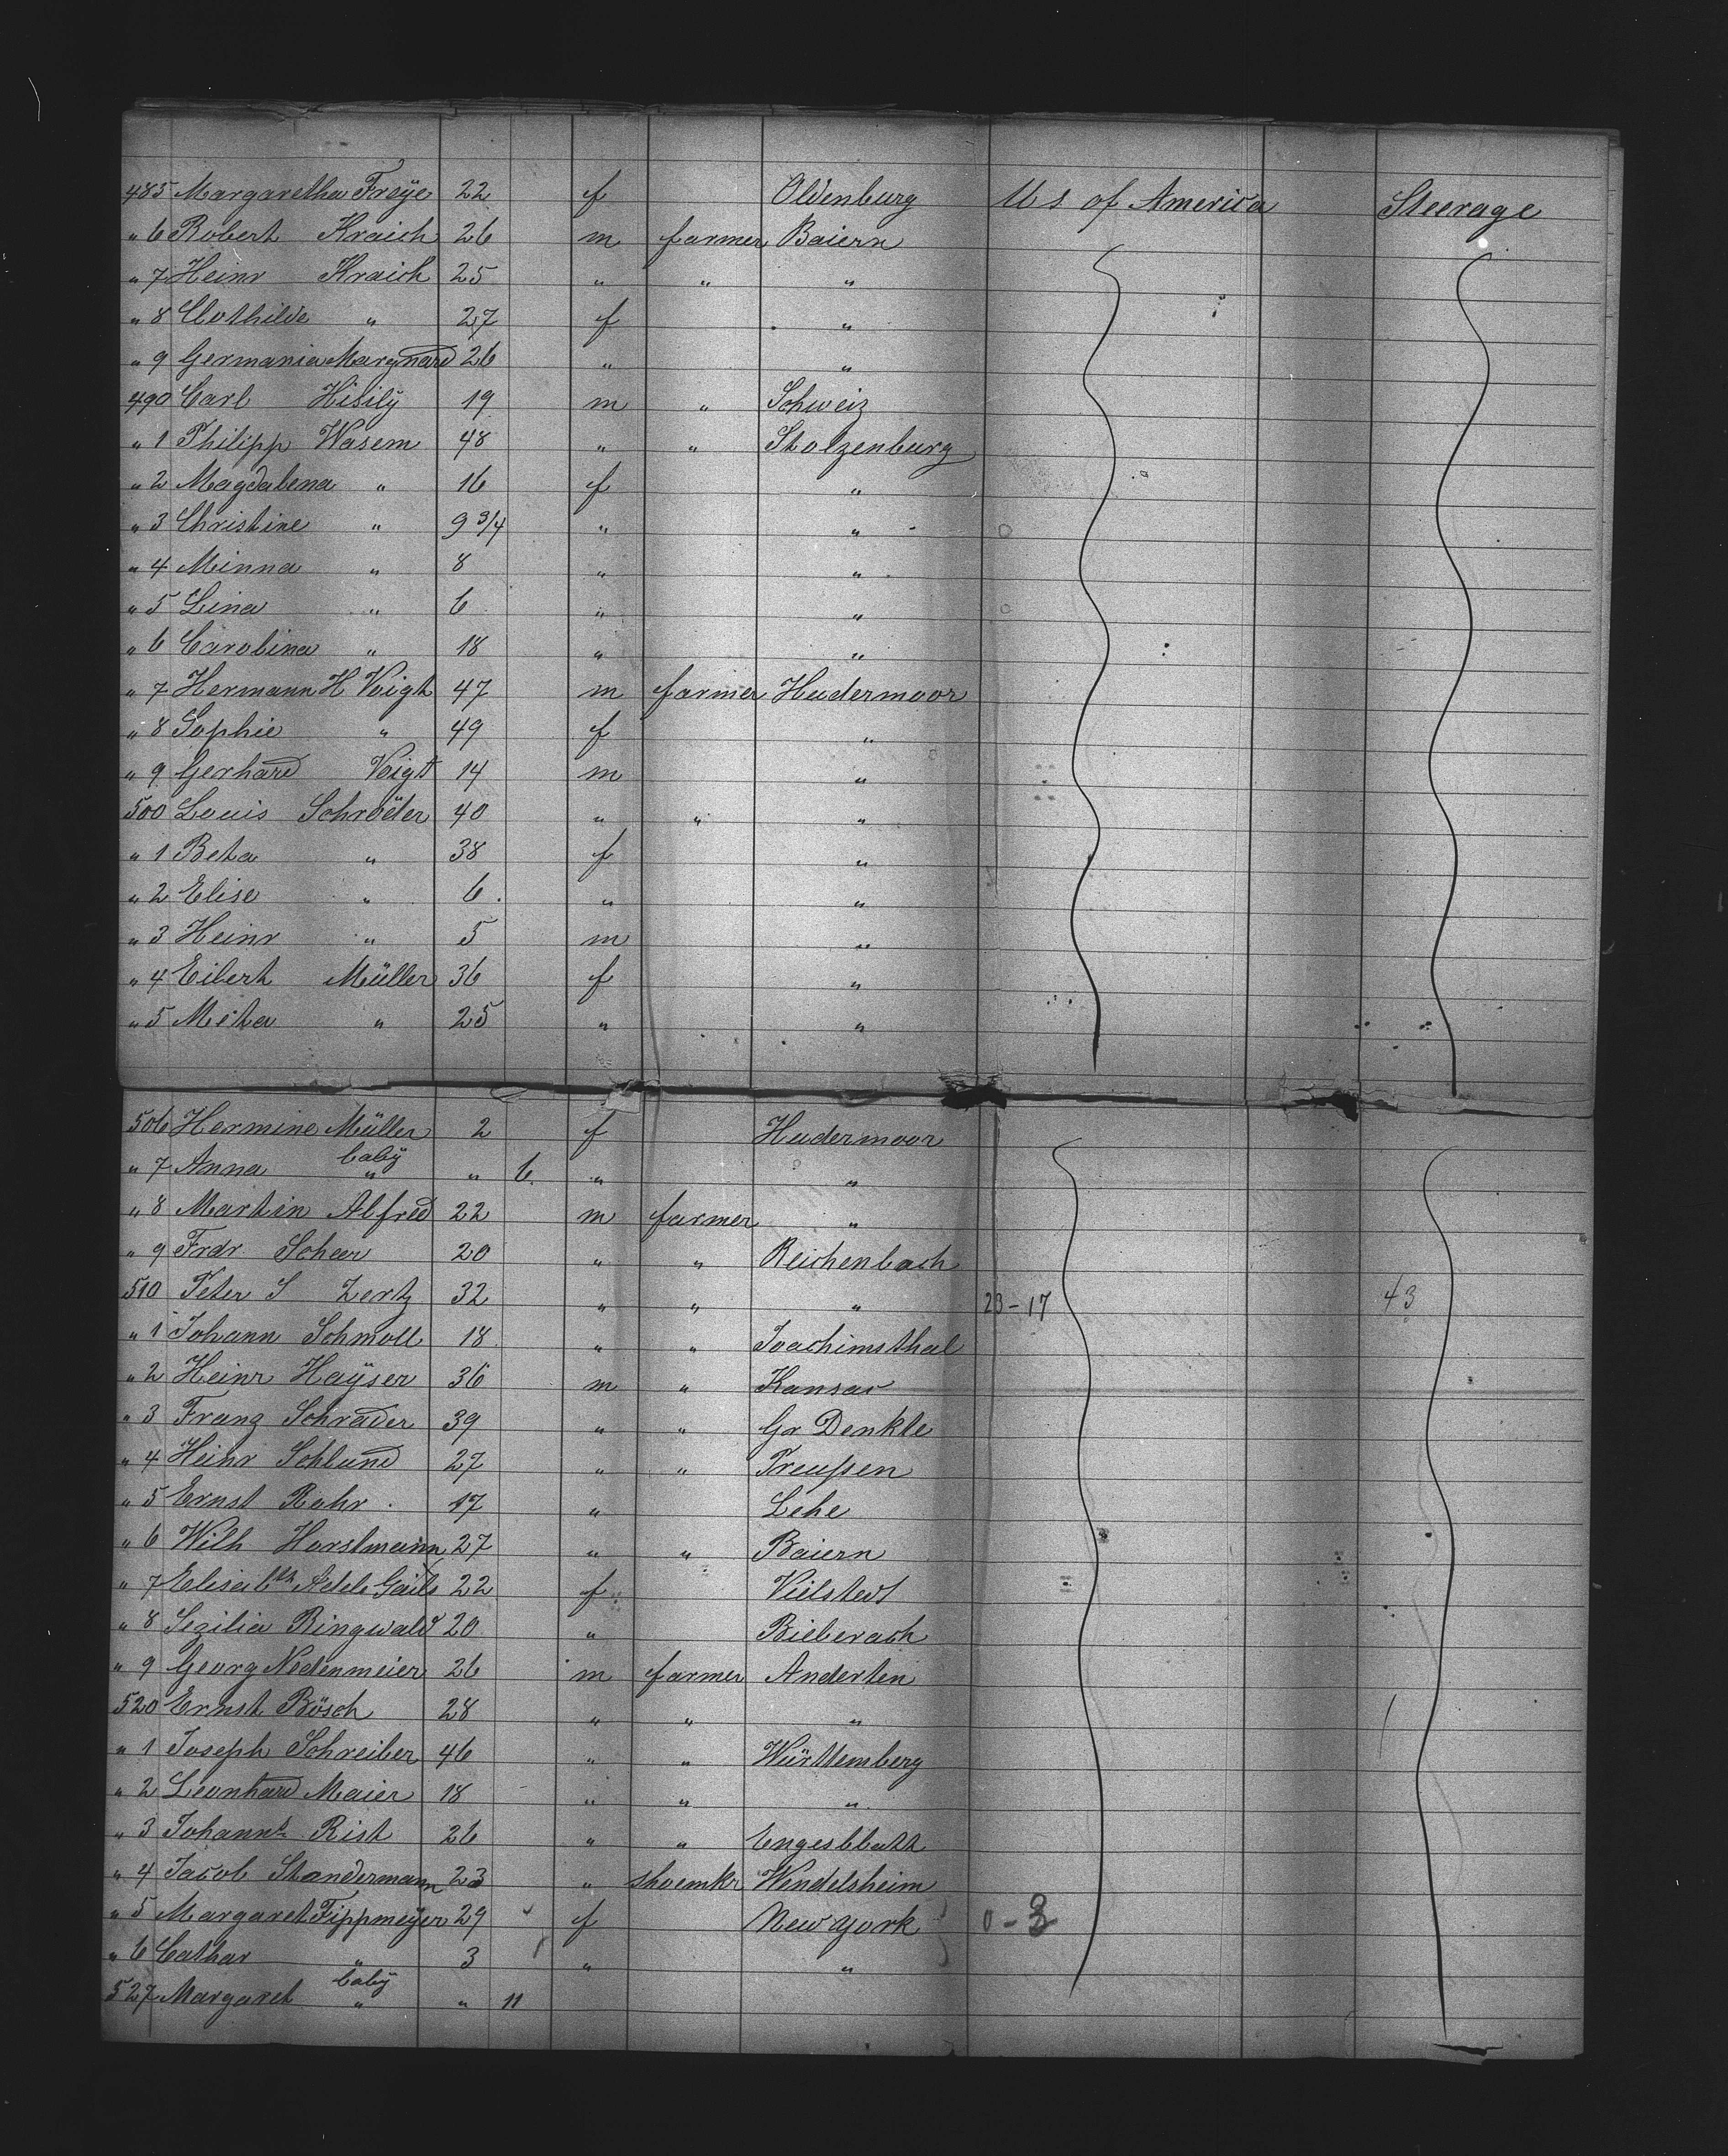 485 Margaretha Freÿe 22 f Oldenburg U s of America Steerage
" 6 Robert Kraich 26 m farmer Baiern
" 7 Heinr Kraich 25 " " "
" 8 Clothilde " 27 f "
" 9 Germania 26 " "
490 Carl Hisilÿ 19 m " Schweiz
" 1 Philipp Wasem 48 " " Stolzenburg
" 2 Magdalena " 16 f "
" 3 Christine " 9 3/4 " "
" 4 Minna " 8 " "
" 5 Lina " 6 " "
" 6 Carolina " 18 " "
" 7 Hermann H Voigt 47 m farmer Hudermoor
" 8 Sophie " 49 f "
" 9 Gerhard Voigt 14 m "
500 Louis Schröder 40 " " "
" 1 Beta " 38 f "
" 2 Elise " 6 " "
" 3 Heinr " 5 m "
" 4 Eibert Müller 36 f "
" 5 Meta " 25 " "
506 Hermine Müller 2 f Hudermoor
" 7 Anna baby " " 6 " "
" 8 Martin Alfred 22 m farmer "
" 9 Frdr Schar 20 " " Reichenbach
510 Peter S Zertz 32 " " " 23-17 43
" 1 Johann Schmoll 18 " " Joachimsthal
" 2 Heinr Haÿser 36 m " Kansas
" 3 Franz Schrader 39 " " Gr Denkte
" 4 Heinr Schlund 27 " " Preußen
" 5 Ernst Rohr 17 " Lehe
" 6 Wilh Horstmann 27 " " Baiern
" 7 Elisabth Adele Gails 22 f Vielstedt
" 8 Sezilia Ringwald 20 " Bieberach
" 9 Georg Nedenmeier 26 m farmer Anderten
520 Ernst Bösch 28 " " "
" 1 Joseph Schreiber 46 " " Württemberg
" 2 Leonhard Maier 18 " " "
" 3 Johanns Rist 26 " " Engesblatt
" 4 Jacob Standermann 23 " shoemkr Wendelsheim
" 5 Margaret Fippmeÿer 29 f New york 0-3
" 6 Cathar " 3 " "
527 Margaret baby " " 11